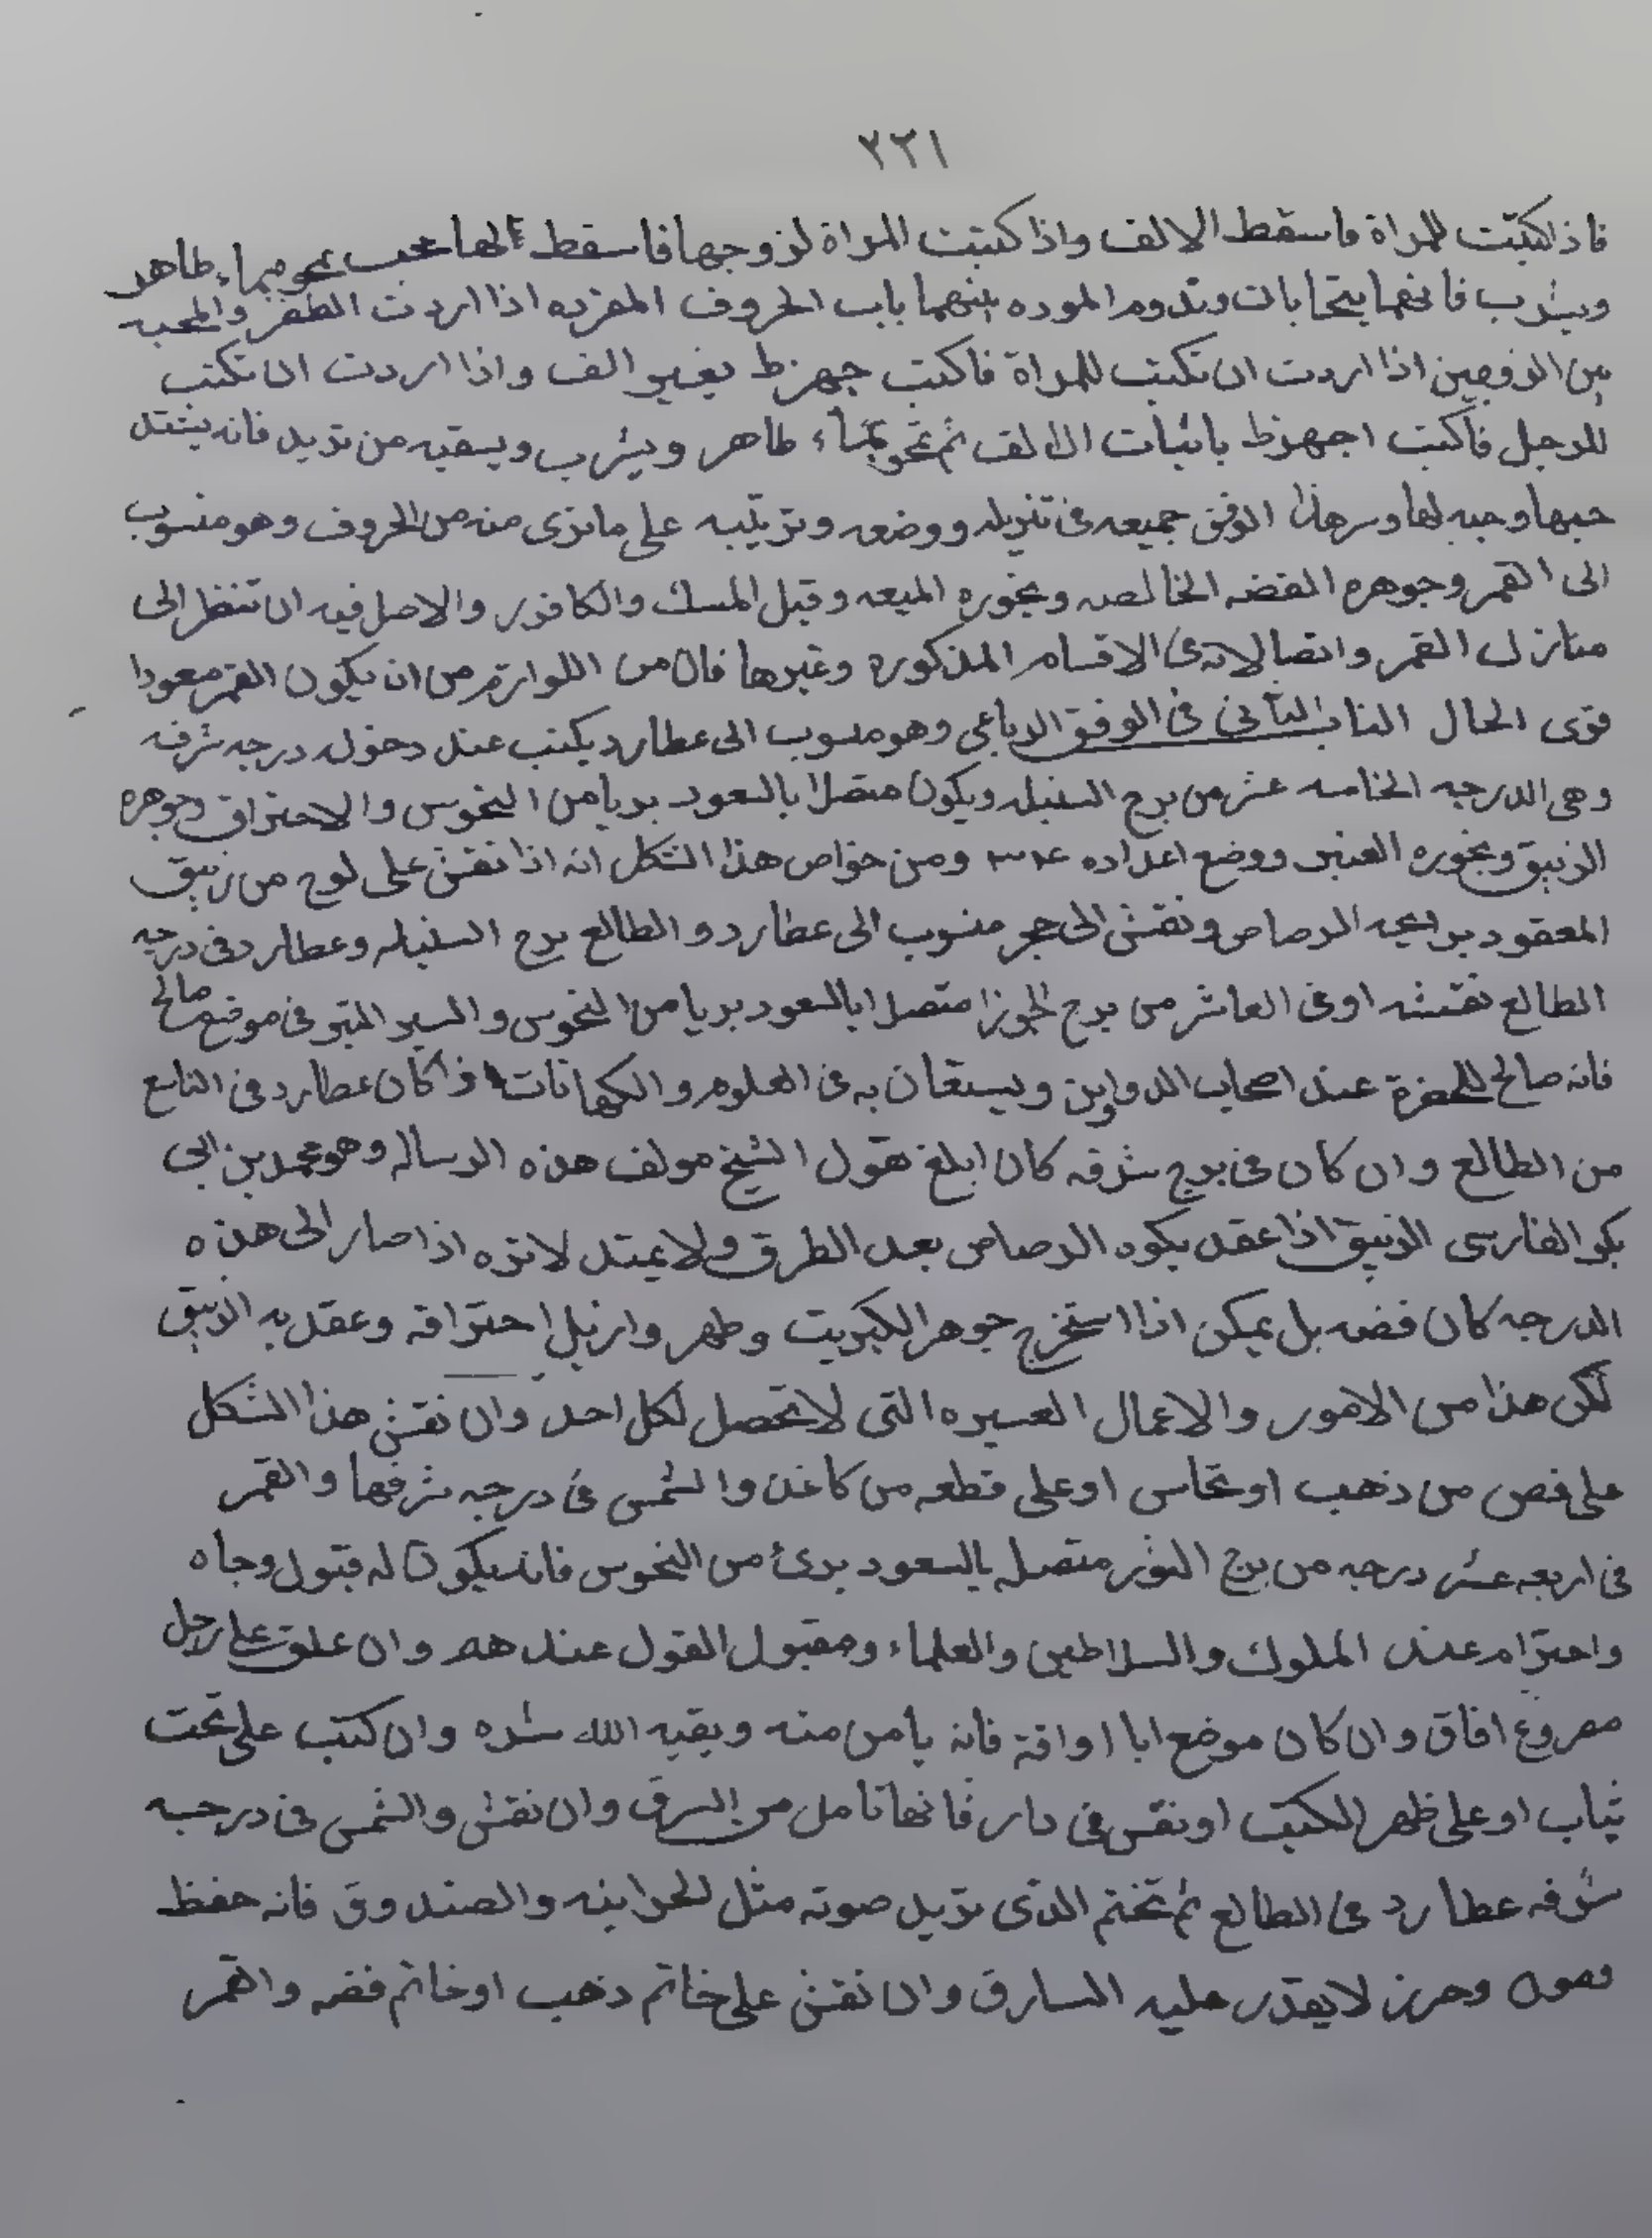 ٢٢١
فاذا كتبت للمراة فاسقط الالف واذا كتبت المراة لزوجها فاسقط الها بماء طاهر
ويشرب فانهما يتحابان وتدوم الموده بينهما باب الحروف المفرده اذا اردت الظفر والمحبه
بين الزوجين اذا اردت ان تكتب للمراة فاكتب جهزط بغير الف واذا اردت ان تكتب
للرجل فاكتب اجهزط باثبات الالف ثم تمحو بماء طاهر ويشرب ويسقيه من تريد فانه ينتقل
حبها وحبه لها وسر هذا الوفق جميعه فى تنزيله ووضعه وترتيبه على ماترى منه من الحروف وهو منسوب
الى القمر وجوهره الفضه الخالصه وبخوره الميعه وقيل المسك والكافور والاصل فيه ان تنظر الى
منازل القمر واتصالاته فى الاقسام المذكورة وغيرها فان من اللوازم من ان يكون القمر مسعودا
قوى الحال الباب الثانى فى الوفق الرباعى وهو منسوب الى عطارد يكتب عند دخوله درجه شرفه
وهى الدرجه الخامسه عشر من برج السنبله ويكون متصلا بالسعود بريا من النحوس والاحتراق وجوهره
الزيبق وبخوره العنبر ووضع اعداده ٣٤ ومن خواص هذا الشكل انه اذا نقش على لوح من زيبق
المعقود الرصاص ونقش الى حجر منسوب الى عطارد والطالع برج السنبله وعطارد فى درجه
الطالع نقشه اوفى العاشر من برج الجوزا متصلا بالسعود بريا من النحوس والسير فى موضع صالح
فانه صالح عند اصحاب الدواوين ويستعان به فى العلوم والكهانات اذا كان عطارد فى التاسع
من الطالع وان كان فى برج شرفه كان ابلغ يقول الشيخ مولف هذه الرساله وهو محمد بن ابى
بكر الفارسى الزيبق اذا عقد يكوه الرصاص بعد الطرق ولا يمتد لانزه اذا صار الى هذه
الدرجه كان فضه بل يمكن اذا استخرج جوهر الكبريت وطهر وازيل احتراقه وعقد به الزيبق
لكن هذا من الامور والاعمال العسيره التى لا تحصل لكل احد وان نقش هذا الشكل
على فص من ذهب او نحاس او على قطعه من كاغد والشمس فى درجه شرفها والقمر
فى اربعه عشر درجه من برج الثور متصله بالسعود برئ من النحوس فانه يكون له قبول وجاه
واحترام عند الملوك والسلاطين والعلماء ومقبول القول عندهم وان علق على رجل
مصروع افاق وان كان موضع فانه يامن منه ويقيه الله شره وان كتب على تخت
ثياب او على ظهر الكتب او نقش فى دار فانها تامل من السرق وان نقش والشمس فى درجه
شرفه عطارد فى الطالع ثم تختم الذى تريد صوته مثل الخزاينه والصندوق فانه حفظ
وصون وحرز لا يقدر عليه السارق وان نقش على خاتم ذهب او خاتم فضه والقمر